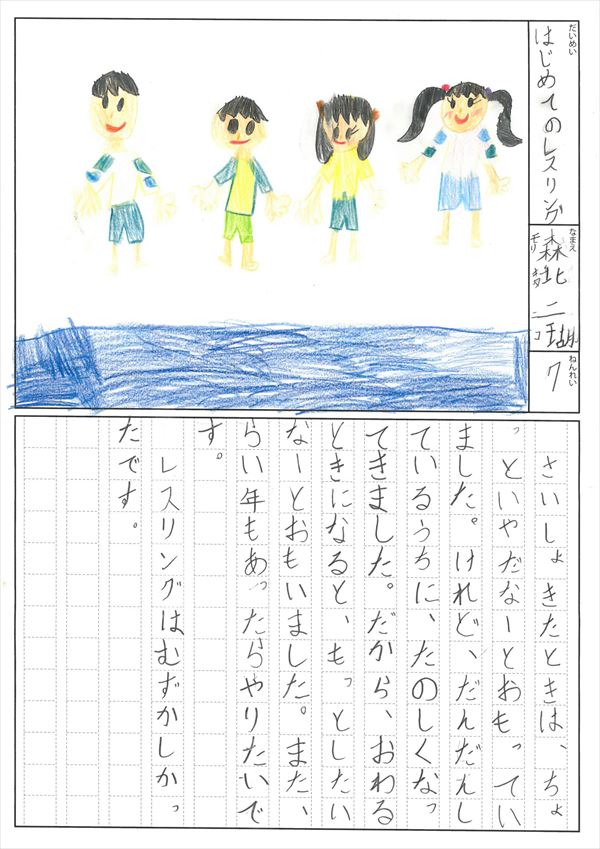 だいめい
はじめてのレスリング
なまえ
森北 二瑚
モリ キタ ニ コ
ねんれい
7
さいしょきたときは、ちょ
っといやだなーとおもってい
ました。けれど、だんだんし
ているうちに、たのしくなっ
てきました。だから、おわる
ときになると、もっとしたい
なーとおもいました。また、
らい年もあったらやりたいで
す。
レスリングはむずかしかっ
たです。